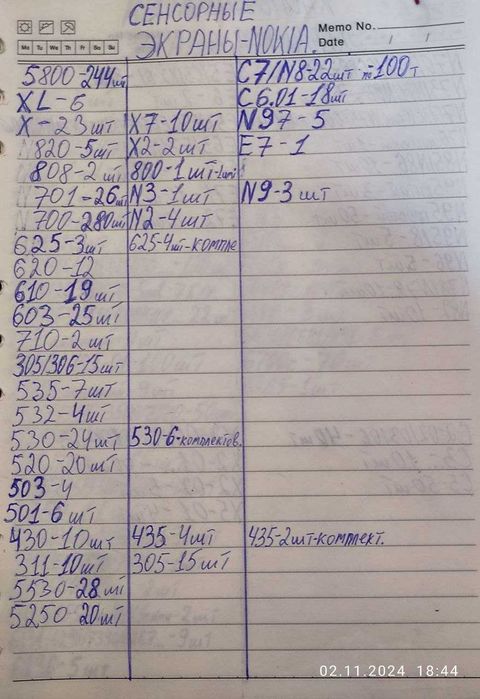 СЕНСОРНЫЕ
ЭКРАНЫ-NOKIA.
Memo No.
Mo Tu We Th Fr Sa Su
Date / /
5800-244шт C7/N8-22шт по-100т
XL-6 C6.01-18шт
X-23шт X7-10шт N97-5
N820-5шт X2-2шт E7-1
808-2шт 800-1шт-Lumi
N701-26шт N3-1шт N9-3шт
N700-280шт N2-4шт
625-3шт 625-4шт-компле
620-12
610-19шт
603-25шт
710-2шт
305/306-15шт
535-7шт
532-4шт
530-24шт 530-6-комплектов.
520-20шт
503-4
501-6шт
430-10шт 435-4шт 435-2шт-комплект.
311-10шт 305-15шт
5530-28шт
5250-20шт
02.11.2024 18:44